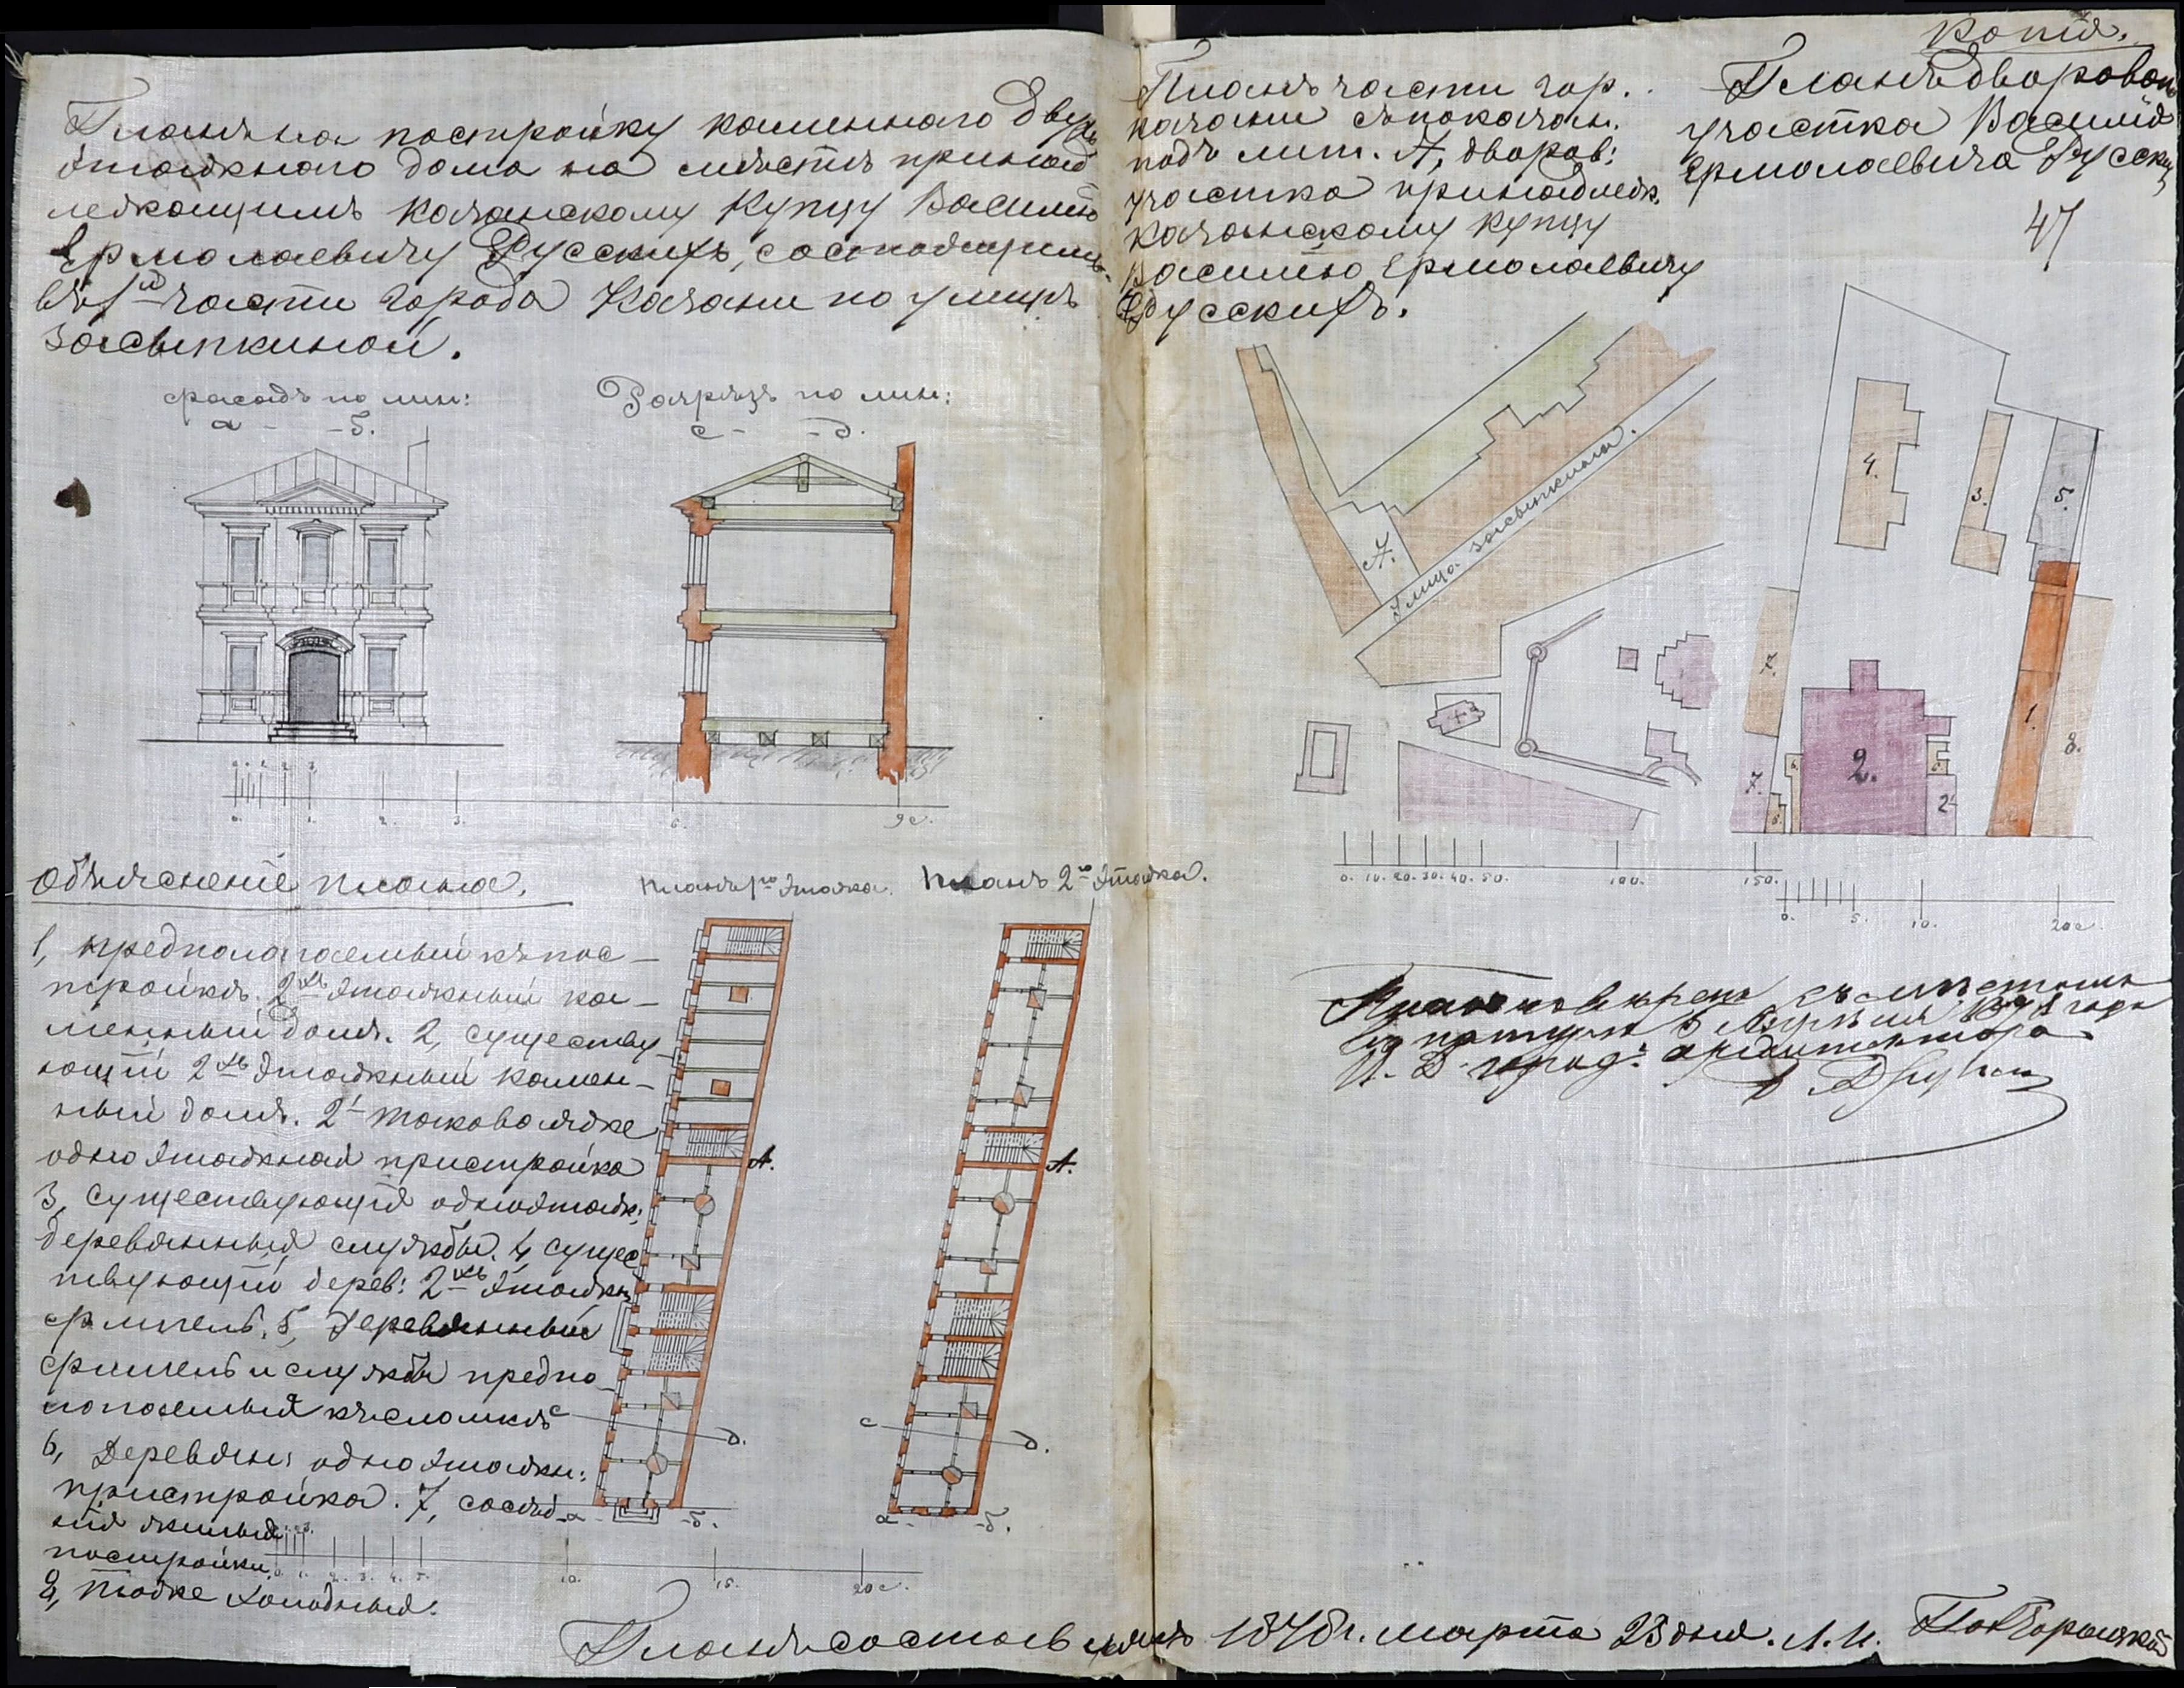 Планъ на постройку каменнаго двухъ
этажнаго дома на мѣстѣ принад
лежащимъ казанскому купцу Василію
Ермолаевичу Русскихъ, состоящимъ
въ 1й части города Казани по улицѣ
Засыпкиной.
Фасадъ по лин:
а - - б.
Разрѣзъ по лин:
с - - д.
0. 1. 2. 3. 6. 9 с.
Объясненіе плана.
1, предполагаемый къ пос-
тройкѣ 2хъ этажный ка-
менный домъ. 2, существу
ющій 2хъ этажный камен-
ный домъ. 2' такова же
одноэтажная пристройка
3, существующія одноэтаж:
деревянныя службы. 4, сущес
твующій дерев: 2хъ этажн
флигель. 5, деревянный
флигель и службы предпо
лагаемыя къ сломкѣ
6, Деревян: одноэтажн:
пристройка. 7, сосѣд-
нія жилыя
постройки.
8, тоже холодныя.
Планъ 1го этажа.
А.
с д.
а - - б.
Планъ 2го этажа.
А.
с д.
а - - б.
10. 15. 20 с.
Копія.
Планъ части гор.
Казани съ показан.
подъ лит. А, дворов:
участка принадлеж.
казанскому купцу
Василію Ермолаевичу
Русскихъ.
Планъ дворовом
участка Василія
Ермолаевича Русских
47
А.
Улица Засыпкина.
0. 10. 20. 30. 40. 50. 100. 150.
4.
3.
5.
7.
1.
8.
2.
7.
6.
6.
6.
2'
0. 5. 10. 20 с.
Планъ вѣренъ съ мѣстомъ
въ натурѣ 6 Апрѣля 1878 года
И. Д. город: архитектора
Планъ составленъ 1878 г. марта 23 дня. Л. И.